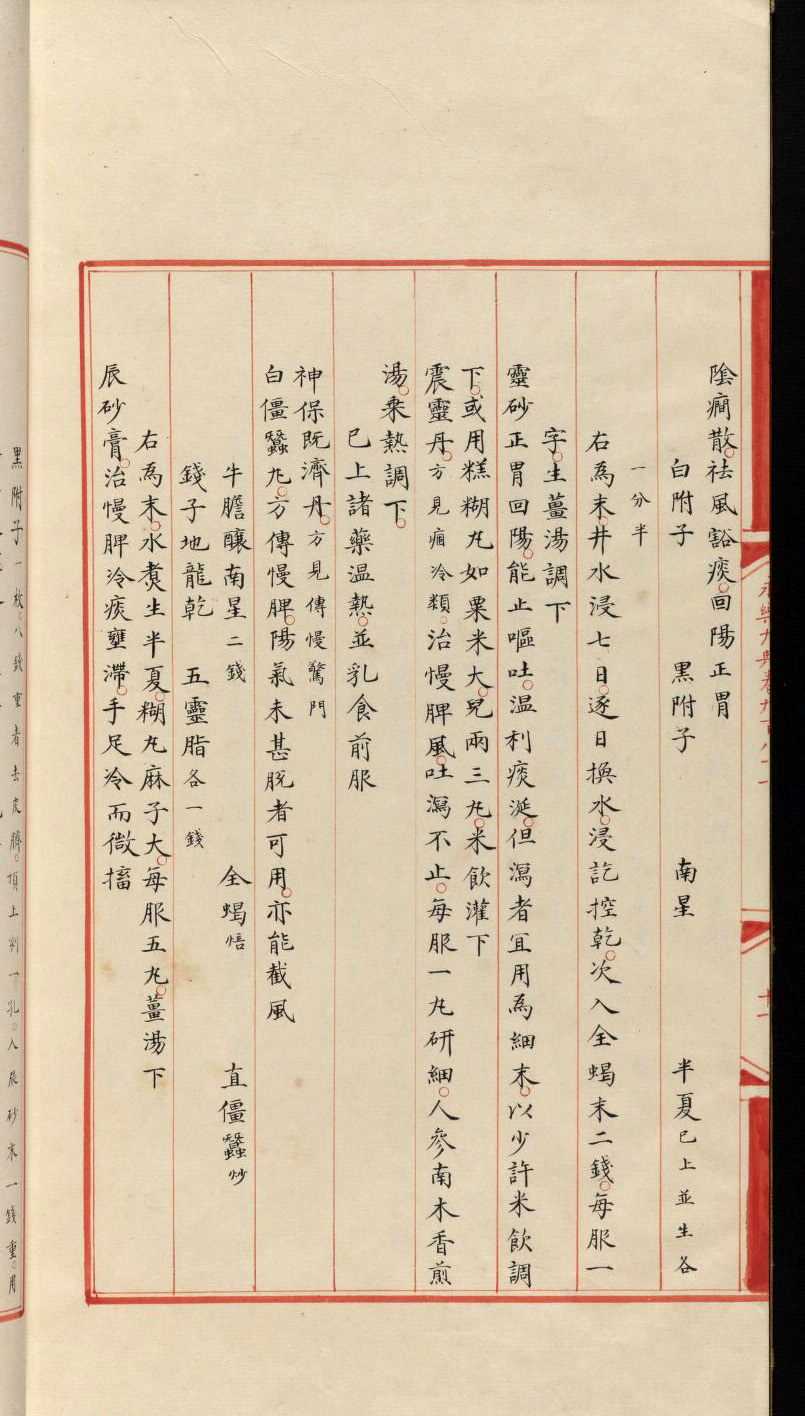 陰癎散祛風豁痰回陽正胃
白附子 黑附子 南星 半夏已上並生各
一分半
右為末井水浸七日逐日換水浸訖控乾次入全蝎末二錢每服一
字生薑湯調下
靈砂正胃回陽能止嘔吐温利痰涎但瀉者宜用為細末以少許米飲調
下或用糕糊丸如粟米大兒兩三丸米飲灌下
震靈丹方見痼冷類治慢脾風吐瀉不止每服一丸研細人參南木香煎
湯乘熱調下
已上諸藥温熱並乳食前服
神保既濟丹方見傳慢驚門
白僵蠶丸方傳慢脾陽氣未甚脫者可用亦能截風
牛膽釀南星二錢 全蝎焙 直僵蠶炒
錢子地龍乾 五靈脂各一錢
右為末水煮生半夏糊丸麻子大每服五丸薑湯下
辰砂膏治慢脾冷痰壅滯手足冷而微搐
黑附子一枚八錢重者去皮臍頂上剜一孔入辰砂末一錢重用